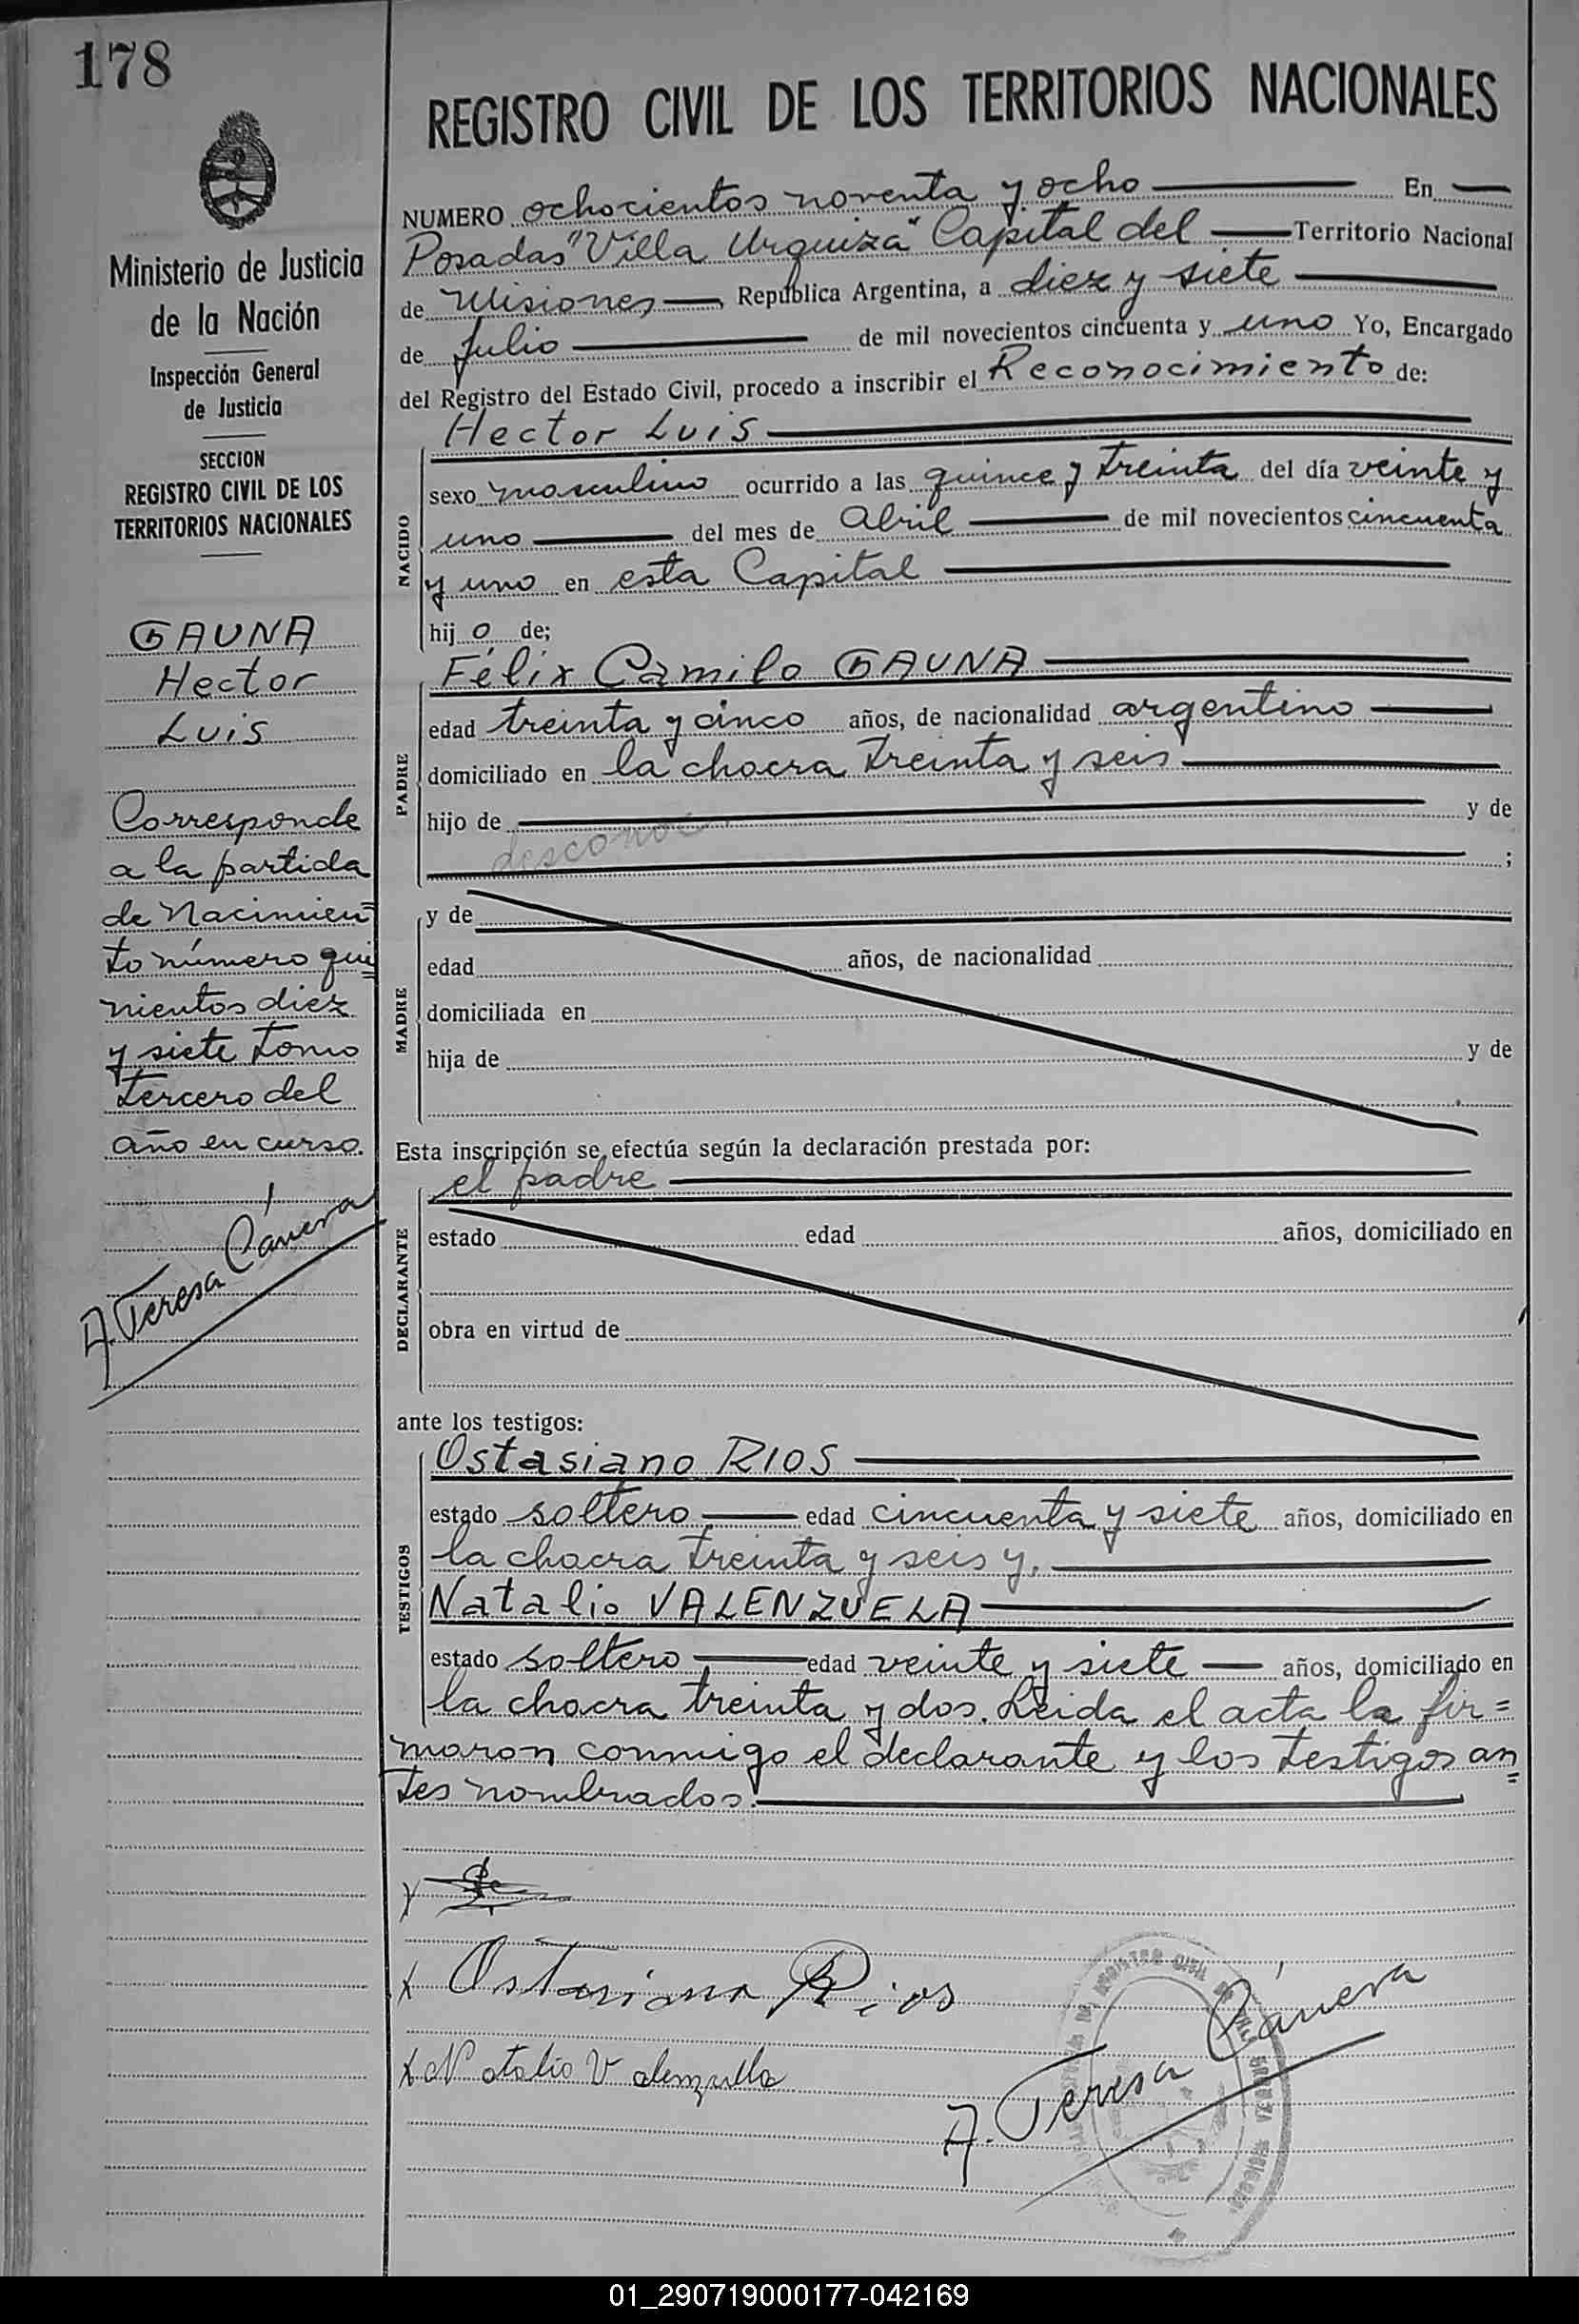 178
REGISTRO CIVIL DE LOS TERRITORIOS NACIONALES
Ministerio de Justicia
de la Nación
Inspección General
de Justicia
SECCION
REGISTRO CIVIL DE LOS
TERRITORIOS NACIONALES
GAUNA
Hector
Luis
Corresponde
a la partida
de Nacimien=
to número qui=
nientos diez
y siete tomo
tercero del
año en curso.
A. Teresa Cánera
NUMERO ochocientos noventa y ocho En
Posadas "Villa Urquiza" Capital del Territorio Nacional
de Misiones República Argentina, a diez y siete
de Julio de mil novecientos cincuenta y uno Yo, Encargado
del Registro del Estado Civil, procedo a inscribir el Reconocimiento de:
Hector Luis
NACIDO
sexo masculino ocurrido a las quince y treinta del día veinte y
uno del mes de Abril de mil novecientos cincuenta
y uno en esta Capital
hijo de;
Félix Camilo GAUNA
PADRE
edad treinta y cinco años, de nacionalidad argentino
domiciliado en la chacra treinta y seis
hijo de y de
desconoc
;
MADRE
y de
edad años, de nacionalidad
domiciliada en
hija de y de
Esta inscripción se efectúa según la declaración prestada por:
el padre
DECLARANTE
estado edad años, domiciliado en
obra en virtud de
ante los testigos:
Ostasiano RIOS
TESTIGOS
estado soltero edad cincuenta y siete años, domiciliado en
la chacra treinta y seis y.
Natalio VALENZUELA
estado soltero edad veinte y siete años, domiciliado en
la chacra treinta y dos. Leida el acta la fir=
maron conmigo el declarante y los testigos an=
tes nombrados.
x Ostasiano Rios
x Natalio Valenzuela
A. Teresa Cánera
01_290719000177-042169